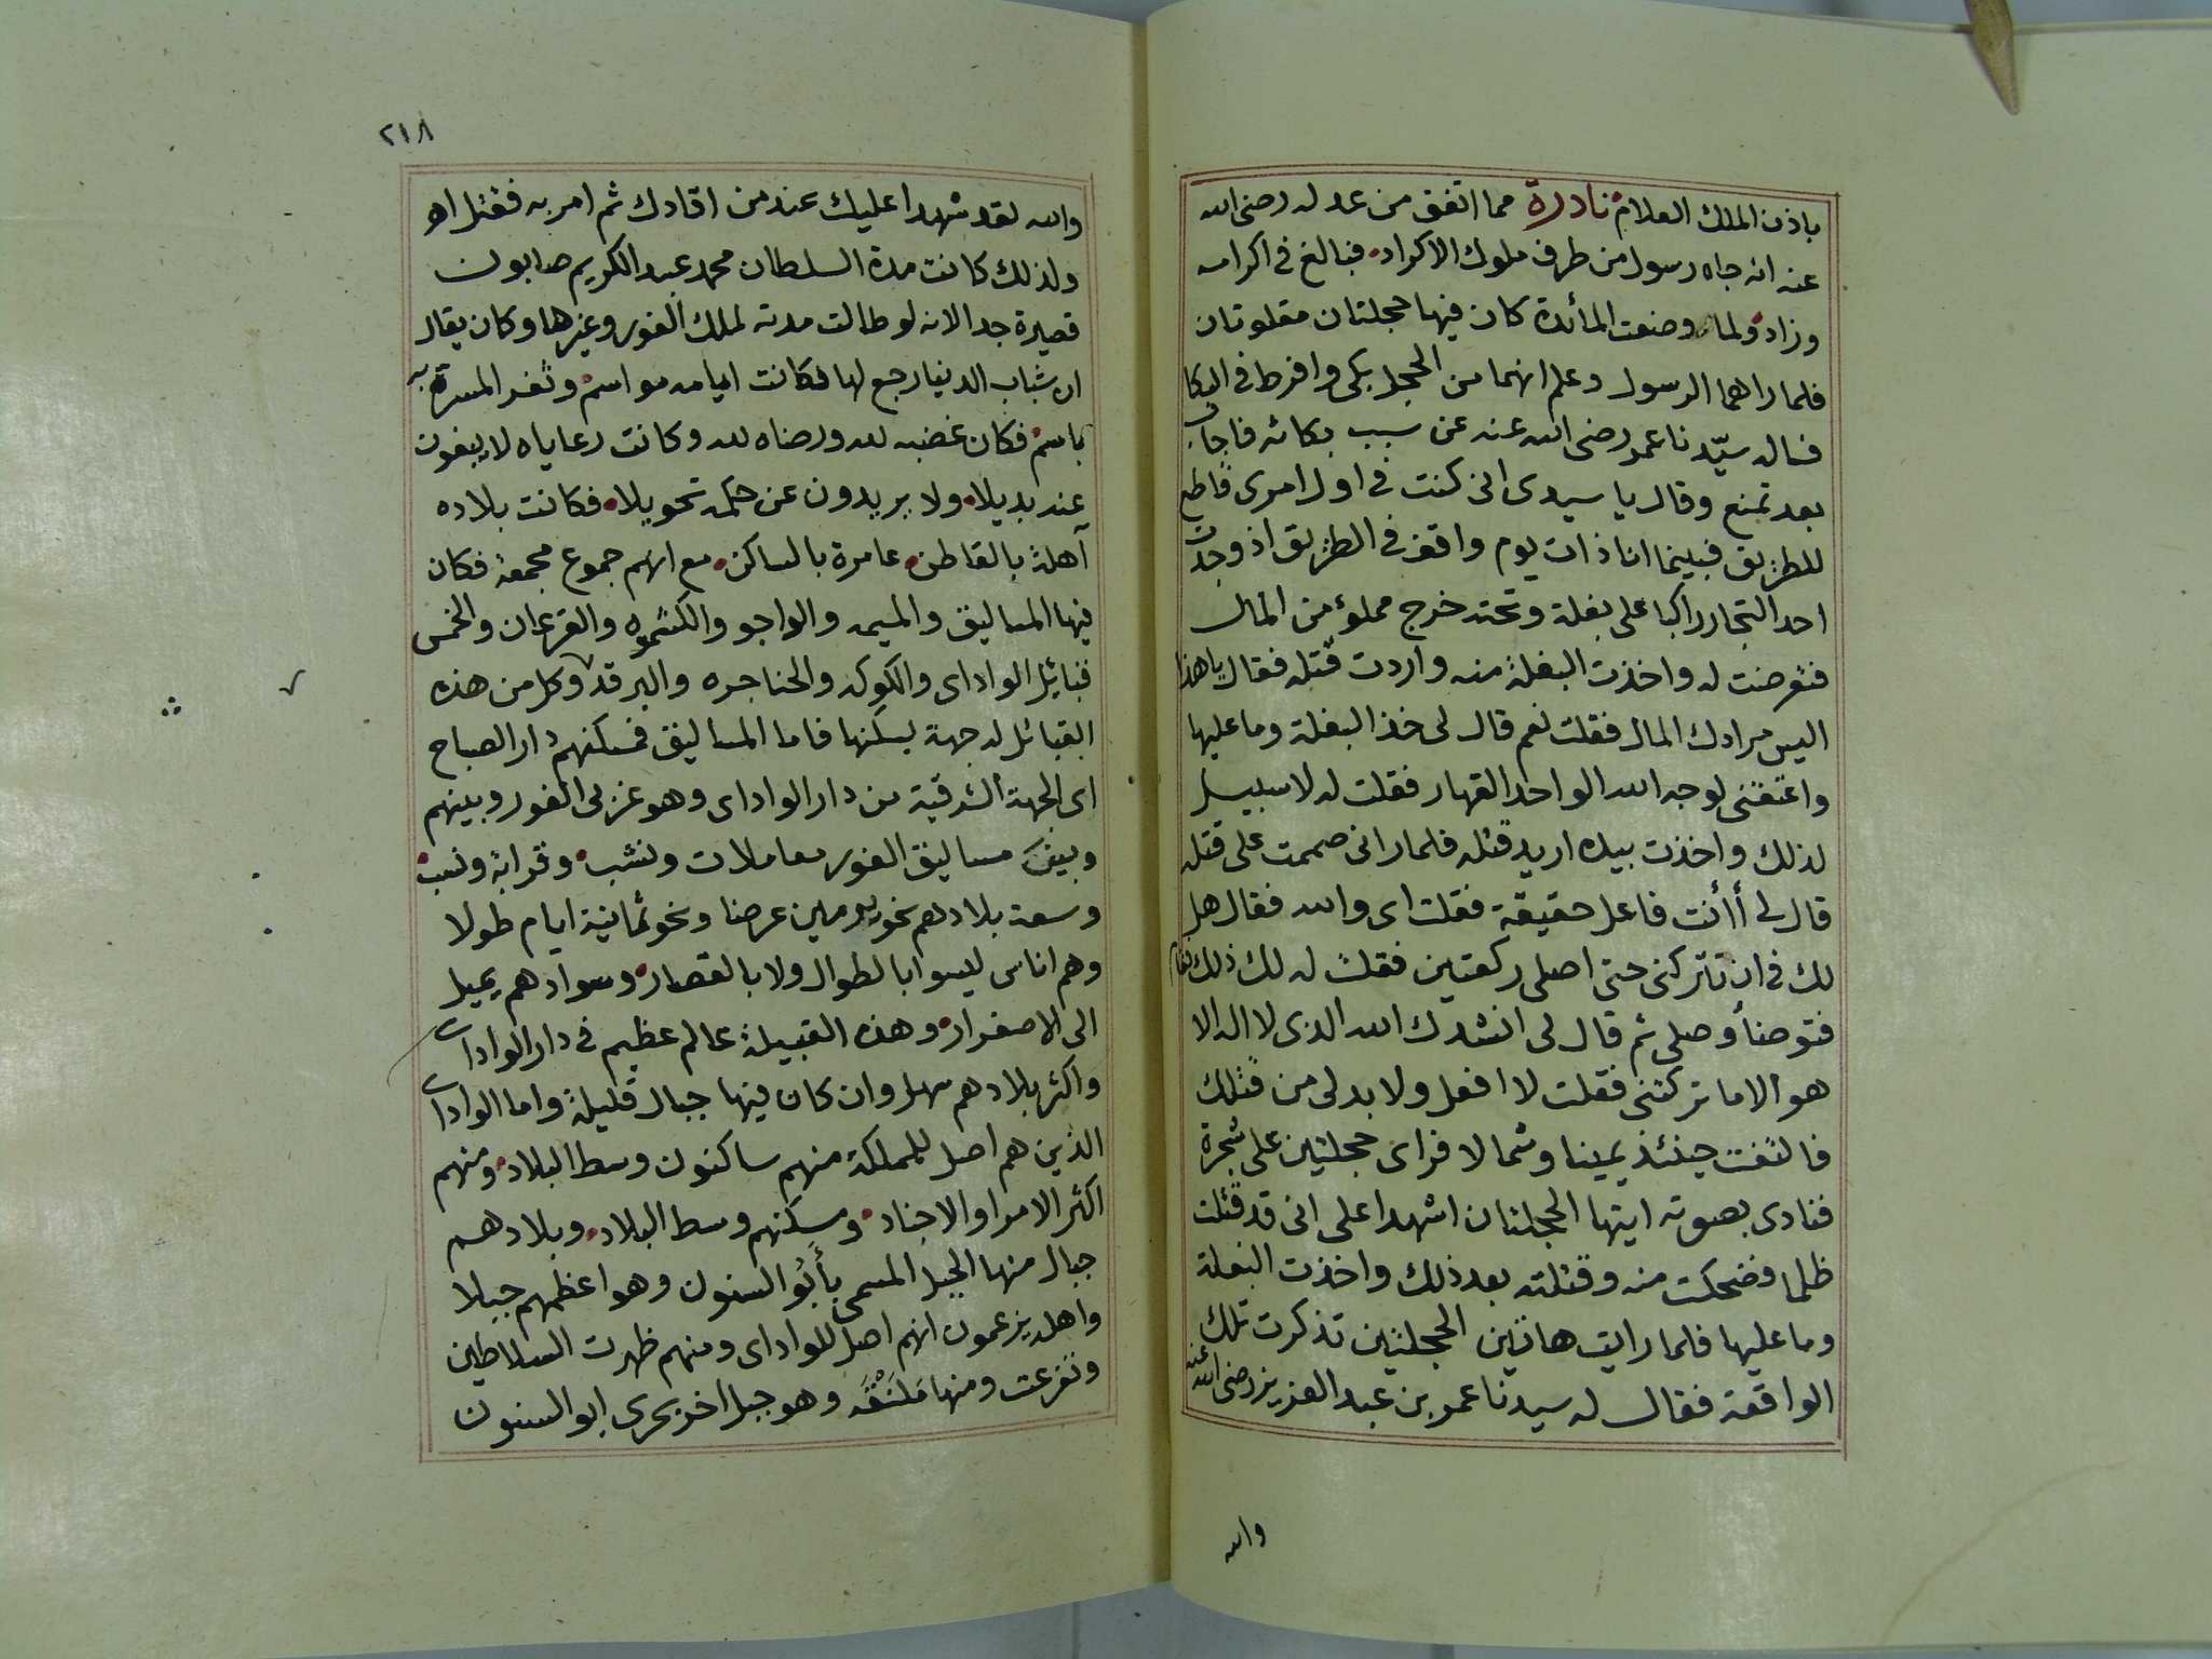 باذن الملك العلام نادرة مما اتفق من عدله رضى الله
عنه انه جاه رسول من طرف ملوك الاكراد فبالغ فى اكرامه
وزاد ولما وضعت المأئدة كان فيها حجلتان مقلوتان
فلما راهما الرسول وعلم انهما من الحجل بكى وافرط فى البكا
فساله سيّدنا عمر رضى الله عنه عن سبب بكائه فاجاب
بعد تمنع وقال يا سيدى انى كنت فى اول امرى قاطع
للطريق فبينما انا ذات يوم واقف فى الطريق اذ وجدت
احد التجار راكبا على بغلة وتحته خرج مملوء من المال
فتعرضت له واخذت البغلة منه واردت قتله فقال يا هذا
اليس مرادك المال فقلت نعم قال لى خذ البغلة وما عليها
واعتقنى لوجه الله الواحد القهار فقلت له لا سبيل
لذلك واخذت بيده اريد قتله فلما رانى صممت على قتله
قال لى أأنت فاعل حقيقة فقلت اى والله فقال هل
لك فى ان تتركنى حتى اصلى ركعتين فقلت له لك ذلك فقام
فتوضأ وصلى ثم قال لى انشدك الله الذى لا اله الا
هو الا ما تركتنى فقلت لا افعل ولا بد لى من قتلك
فالتفت حينئذ يمينا وشمالا فراى حجلتين على شجرة
فنادى بصوته ايتها الحجلتان اشهدا على انى قد قتلت
ظلما فضحكت منه وقتلته بعد ذلك واخذت البغلة
وما عليها فلما رايت هاتين الحجلتين تذكرت تلك
الواقعة فقال له سيدنا عمر بن عبد العزيز رضى الله عنه
والله
٢١٨
والله لقد شهدا عليك عند من اقادك ثم امر به فقتل اهـ
ولذلك كانت مدة السلطان محمد عبد الكريم صابون
قصيرة جدا لانه لو طالت مدته لملك الفور وغيرها وكان يقال
ان شباب الدنيا رجع لها فكانت ايامه مواسم وثغر المسرة به
باسم فكان غضبه لله ورضاه لله وكانت رعاياه لا يبغون
عنه بديلا ولا يريدون عن حكمه تحويلا فكانت بلاده
آهلة بالقاطن عامرة بالساكن مع انهم جموع مجمعة فكان
فيها المساليق والميمه والواجو والكشمره والقرعان والخمس
قبائل الواداى والكوكه والجناجره والبرقد وكل من هذه
القبائل له جهة يسكنها فاما المساليق فمسكنهم دار الصباح
اى الجهة الشرقية من دار الواداى وهو غربى الفور وبينهم
وبين مساليق الفور معاملات ونشب وقرابة ونسب
وسعة بلادهم نحو يومين عرضا ونحو ثمانية ايام طولا
وهم اناس ليسوا بالطوال ولا بالقصار وسوادهم يميل
الى الاصفرار وهذه القبيلة عالم عظيم فى دار الواداى
واكثر بلادهم سهل وان كان فيها جبال قليلة واما الواداى
الذين هم اصل للمملكة منهم ساكنون وسط البلاد ومنهم
اكثر الامرا والاجناد ومسكنهم وسط البلاد وبلادهم
جبال منها الجبل المسمى بأبُو السنون وهو اعظمهم جبلا
واهله يزعمون انهم اصل للواداى ومنهم ظهرت السلاطين
وتفرعت ومنها مَلَنْقَه وهو جبل اخر بحرى ابو السنون